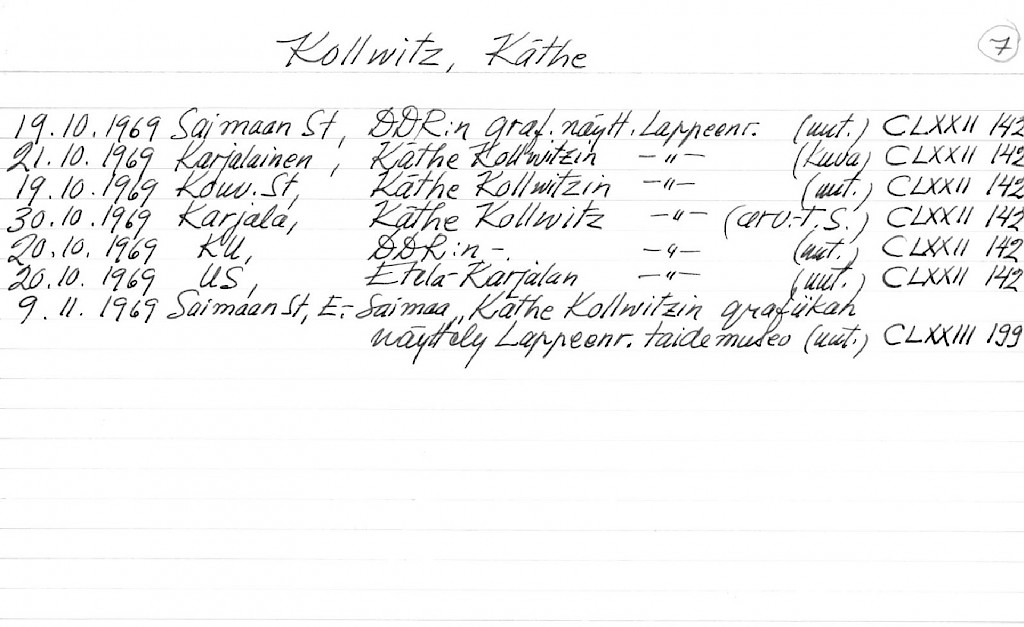 Kollwitz, Käthe
7
19.10.1969 Saimaan St, DDR:n graf. näytt. Lappeenr. (uut.) CLXXII 142
21.10.1969 Karjalainen, Käthe Kollwitzin —"— (kuva) CLXXII 142
19.10.1969 Kouv. St, Käthe Kollwitzin —"— (uut.) CLXXII 142
30.10.1969 Karjala, Käthe Kollwitz —"— (arv. T.S.) CLXXII 142
20.10.1969 KU, DDR:n —"— (uut.) CLXXII 142
20.10.1969 US, Etelä-Karjalan —"— (uut.) CLXXII 142
9.11.1969 Saimaan St, E.-Saimaa, Käthe Kollwitzin grafiikan
näyttely Lappeenr. taidemuseo (uut.) CLXXIII 199